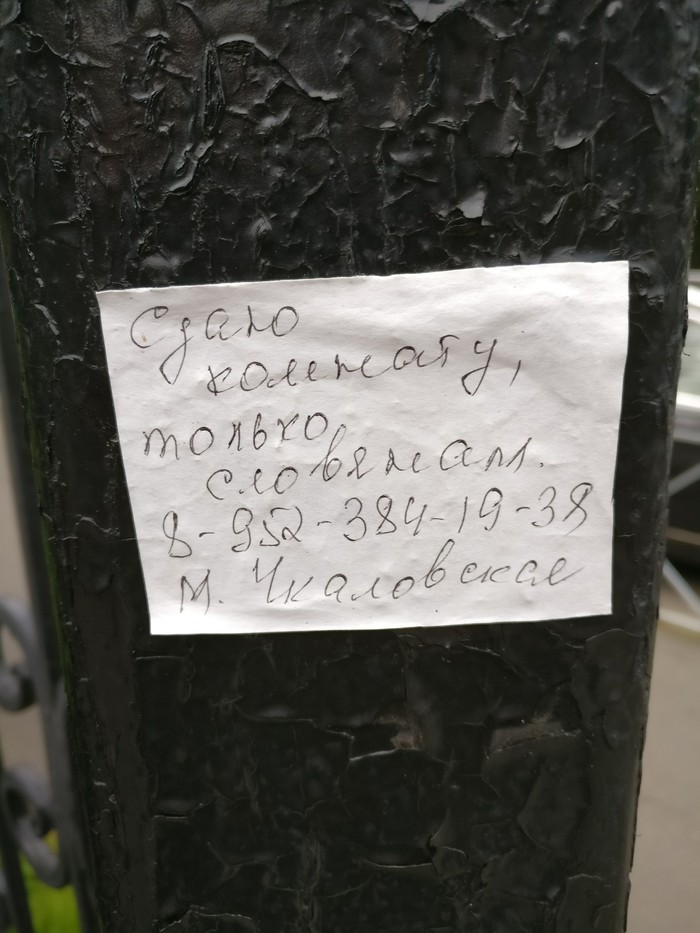 Сдаю
комнату,
только
словянам.
8-952-384-19-38
М. Чкаловская